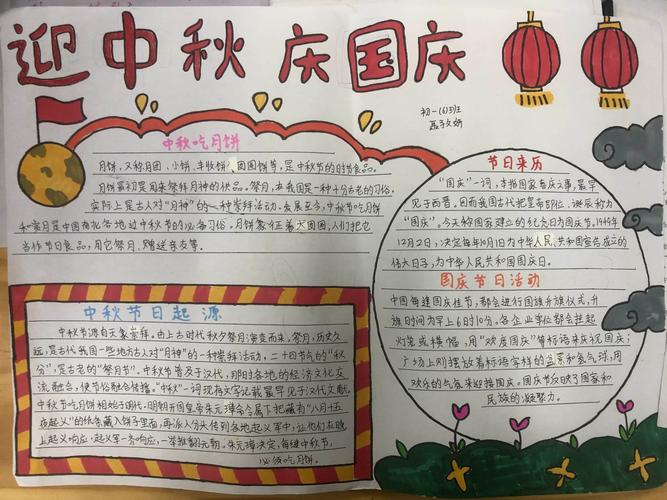 迎中秋 庆国庆
初一(6)班
中秋吃月饼
月饼，又称月团、小饼、丰收饼、团圆饼等，是中秋节的时节食品。
月饼最初是用来祭拜月神的供品。祭月，在我国是一种十分古老的习俗，
实际上是古人对“月神”的一种崇拜活动。发展至今，中秋节吃月饼
和赏月是中国南北各地过中秋节的必备习俗。月饼象征着大团圆，人们把它
当作节日食品，用它祭月、赠送亲友等。
中秋节日起源
中秋节源自天象崇拜，由上古时代秋夕祭月演变而来。祭月，历史久
远，是古代我国一些地方古人对“月神”的一种崇拜活动，二十四节气的“秋
分”，是古老的“祭月节”。中秋节普及于汉代，那时各地的经济文化交
流融合，使节俗融合传播。“中秋”一词现存文字记载最早见于汉代文献。
中秋节吃月饼相始于明代。明朝开国皇帝朱元璋命令属下把藏有“八月十五
夜起义”的纸条藏入饼子里面，再派人分头传到各地起义军中，让他们在晚
上起义响应。起义军一齐响应，一举推翻元朝。朱元璋决定，每逢中秋节，
必须吃月饼。
节日来历
“国庆”一词，本指国家喜庆之事，最早
见于西晋。因而我国古代把皇帝即位、诞辰称为
“国庆”。今天称国家建立的纪念日为国庆节。1949年
12月2日，决定每年10月1日为中华人民共和国宣告成立的
伟大日子，为中华人民共和国国庆日。
国庆节日活动
中国每逢国庆佳节，都会进行国旗升旗仪式，升
旗时间为早上6时10分。各企业学位都会挂起
灯笼或横幅，用“欢度国庆”等标语来庆祝国庆；
广场上则摆放着标语字样的盆景和氢气球，用
欢乐的气氛来迎接国庆。国庆节反映了国家和
民族的凝聚力。